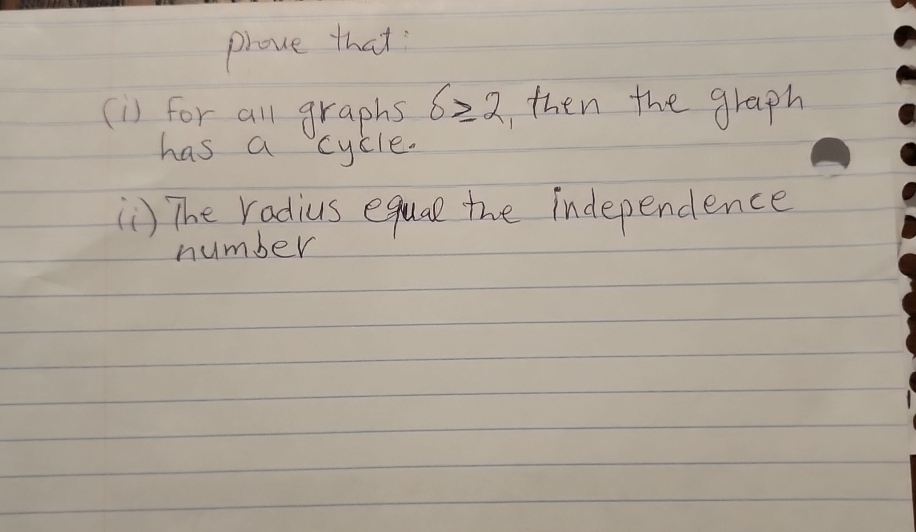 prove that:
(i) for all graphs δ≥2, then the graph
has a cycle.
ii) The radius equal the independence
number